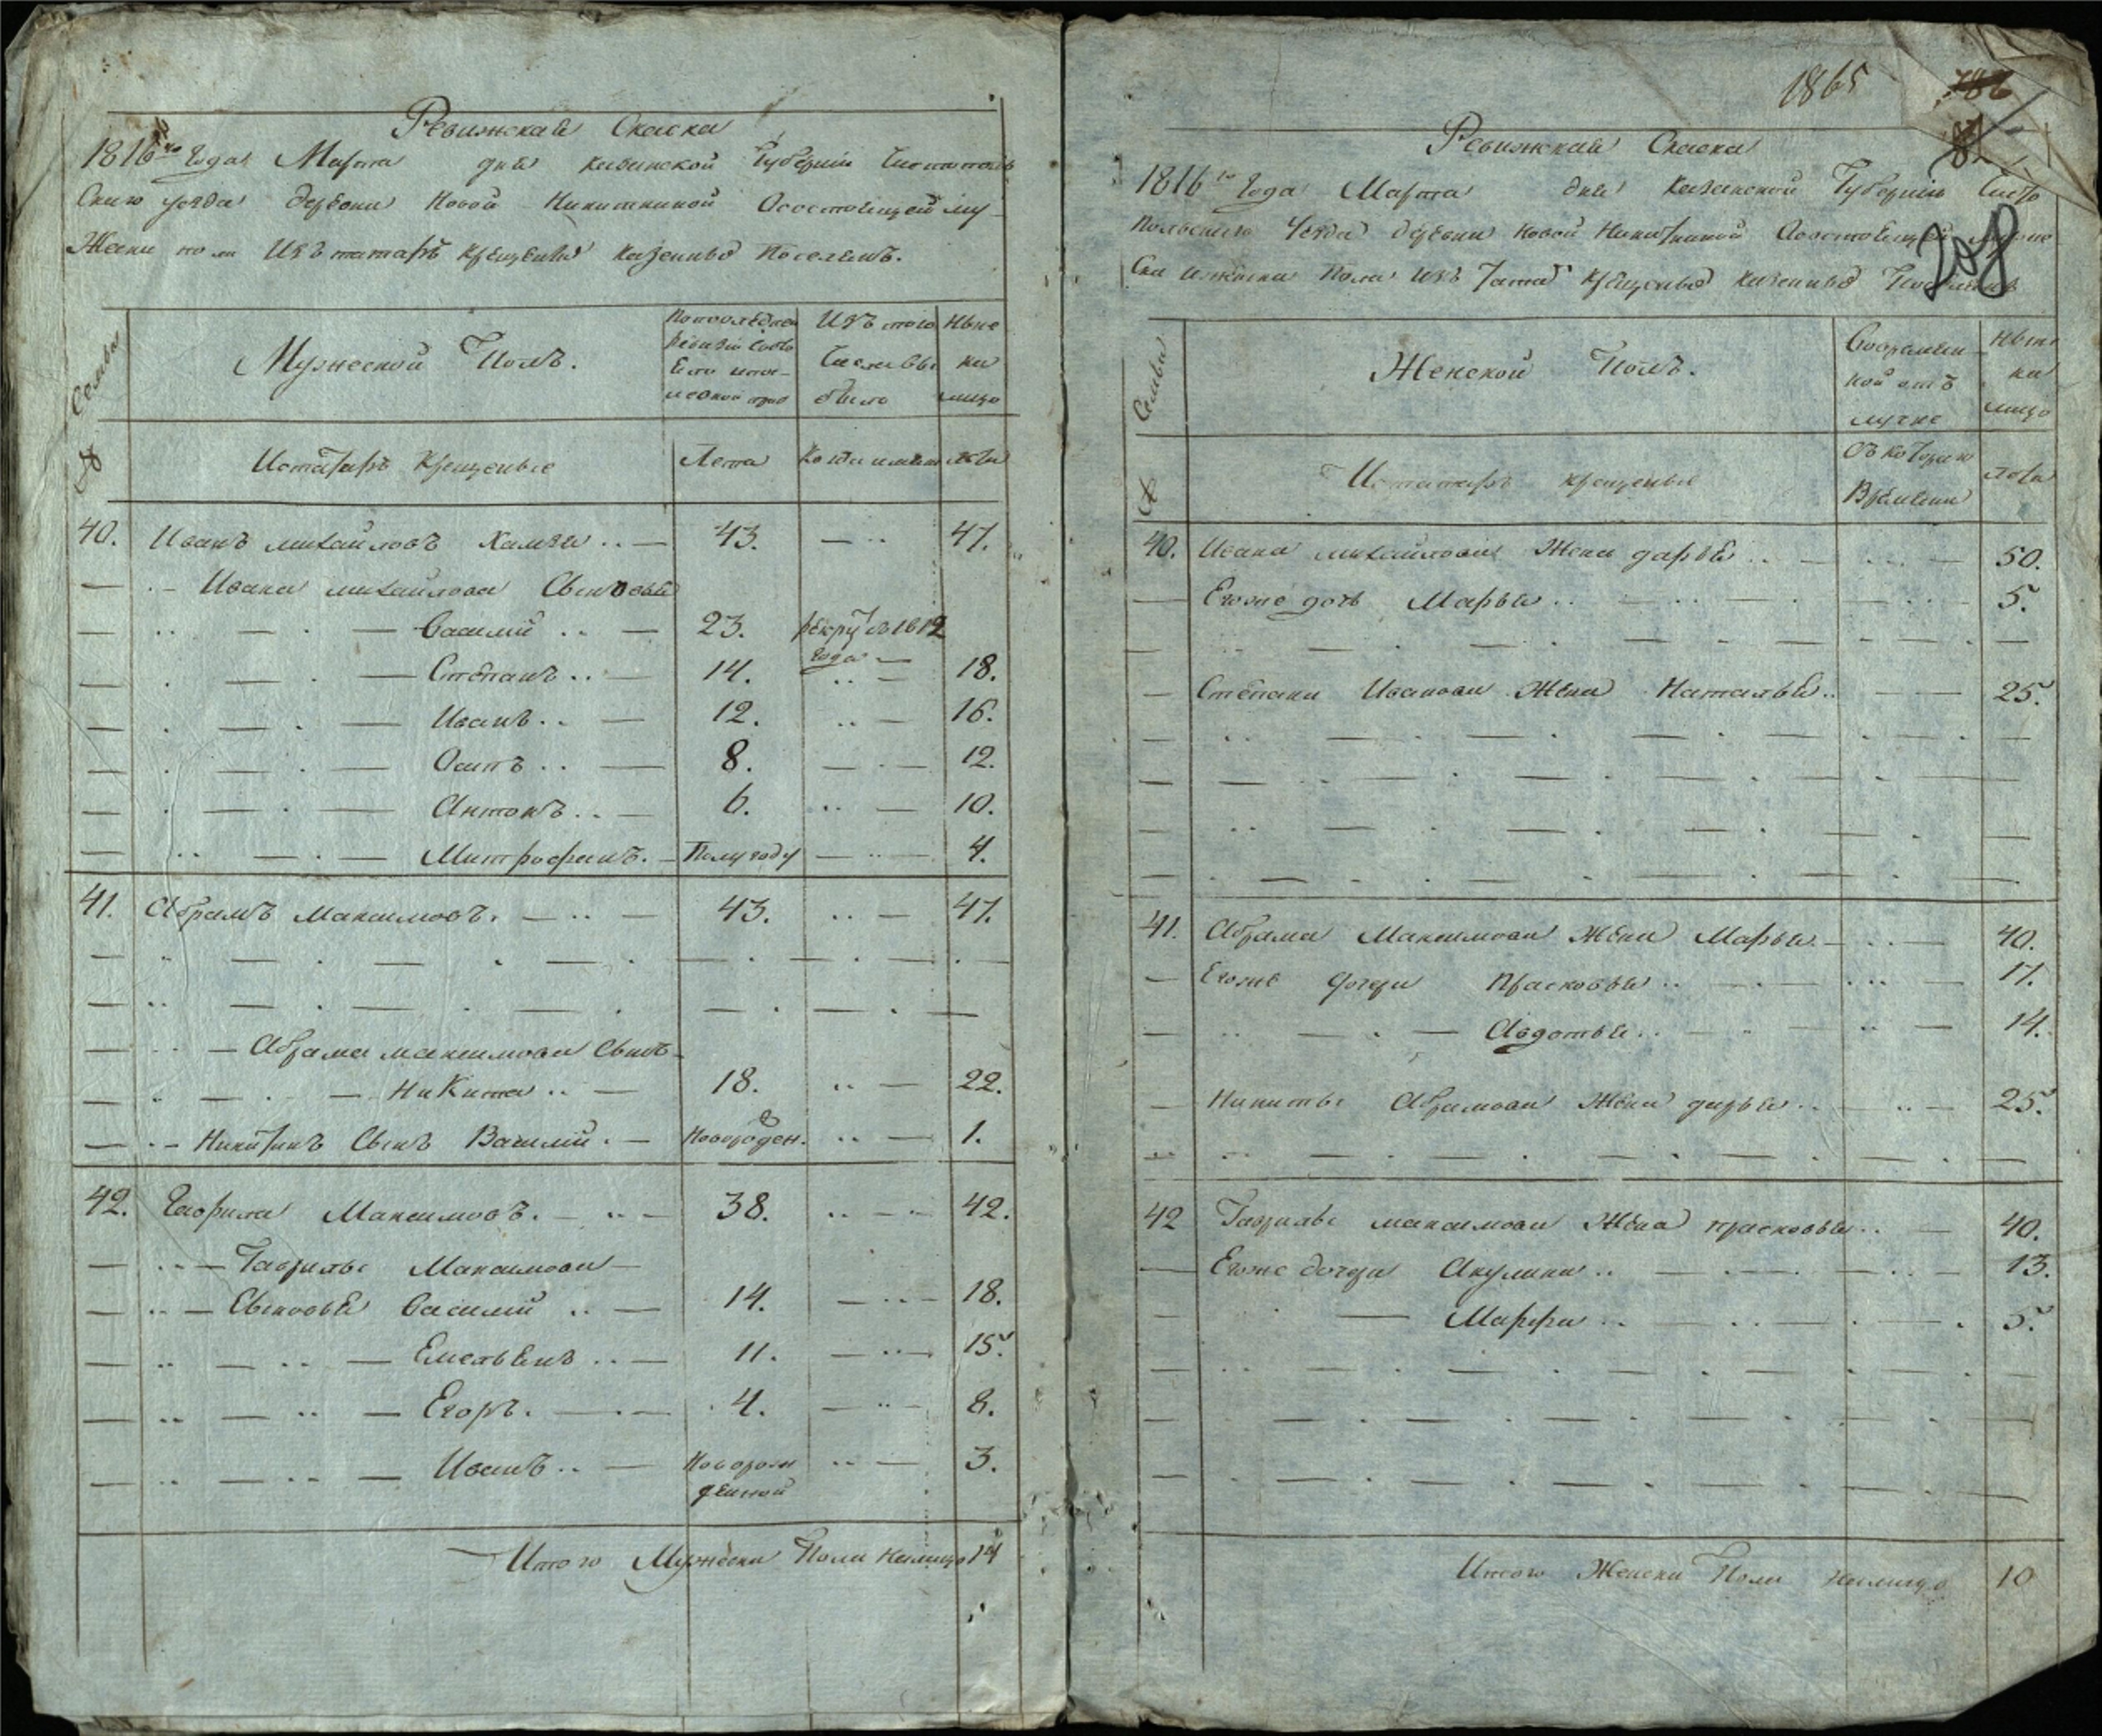 Ревижская Скаска
1816го Года Марта дня казанской Губернiи Чистополь
Скаго уезда деревни Новой Никиткиной Осостоящей му-
Жеска пола Изъ татаръ крещеныхъ казенныхъ Поселянъ.
Семьи
Мужеской Полъ.
Попоследней
ревизiи Состо
Ело ипос-
ле оной
Изъ того
Числа Вы
было
Ныне
на
лицо
№
Истатаръ Крещеные
Лета
Когда имянно
лета
40. Иванъ михайловъ Камза .. — 43. — .. 47.
Ивана михайлова Сыновья
Василий .. — 23. рекрут въ 1812
Года —
Степанъ .. — 14. .. — 18.
Иванъ .. — 12. .. — 16.
Осипъ .. — 8. — .. — 12.
Антонъ .. — 6. .. — 10.
Митрофанъ. — Полугоду — .. — 4.
41. Абрамъ Максимовъ. — .. — 43. .. — 47.
Абрама максимова Сынъ
Никита .. — 18. .. — 22.
Никитинъ Сынъ Василий . — Новорожден. .. — 1.
42. Гаврила Максимовъ. — .. — 38. .. — 42.
Гаврилы Максимова
Сыновья Василий .. — 14. — .. — 18.
Емельянъ .. — 11. — .. — 15.
Егоръ. — 4. — .. — 8.
Иванъ .. — Новорож .. — 3.
денной
Итого Мужеска Пола налицо 14
1865
786
208
Ревижская Скаска
1816го Года Марта дня Казанской Губернiи Чисто
Польскаго Уезда деревни Новой Никиткиной Осостоящей мужес
Ска ижеска Пола Изъ Татаръ Крещеныхъ казенныхъ Поселянъ
Семьи
Женской Полъ.
Вовремян-
ной отъ
лучке
Ныне
на
лицо
№
Истатаръ крещеныя
Съ котораго
Времени
лета
40. Ивана михайлова Жена дарья .. — .. — 50.
Егоже дочь Марья .. — 5.
Степана Иванова Жена Наталья .. — 25.
41. Абрама Максимова Жена Марья. — .. — 40.
Егоже дочери Прасковья .. — 17.
Авдотья .. — 14.
Никиты Абрамова Жена дарья .. — 25.
42 Гаврилы максимова Жена прасковья .. — 40.
Егоже дочери Акулина .. — 13.
Марфа .. — 5.
Итого Женска Пола налицо 10